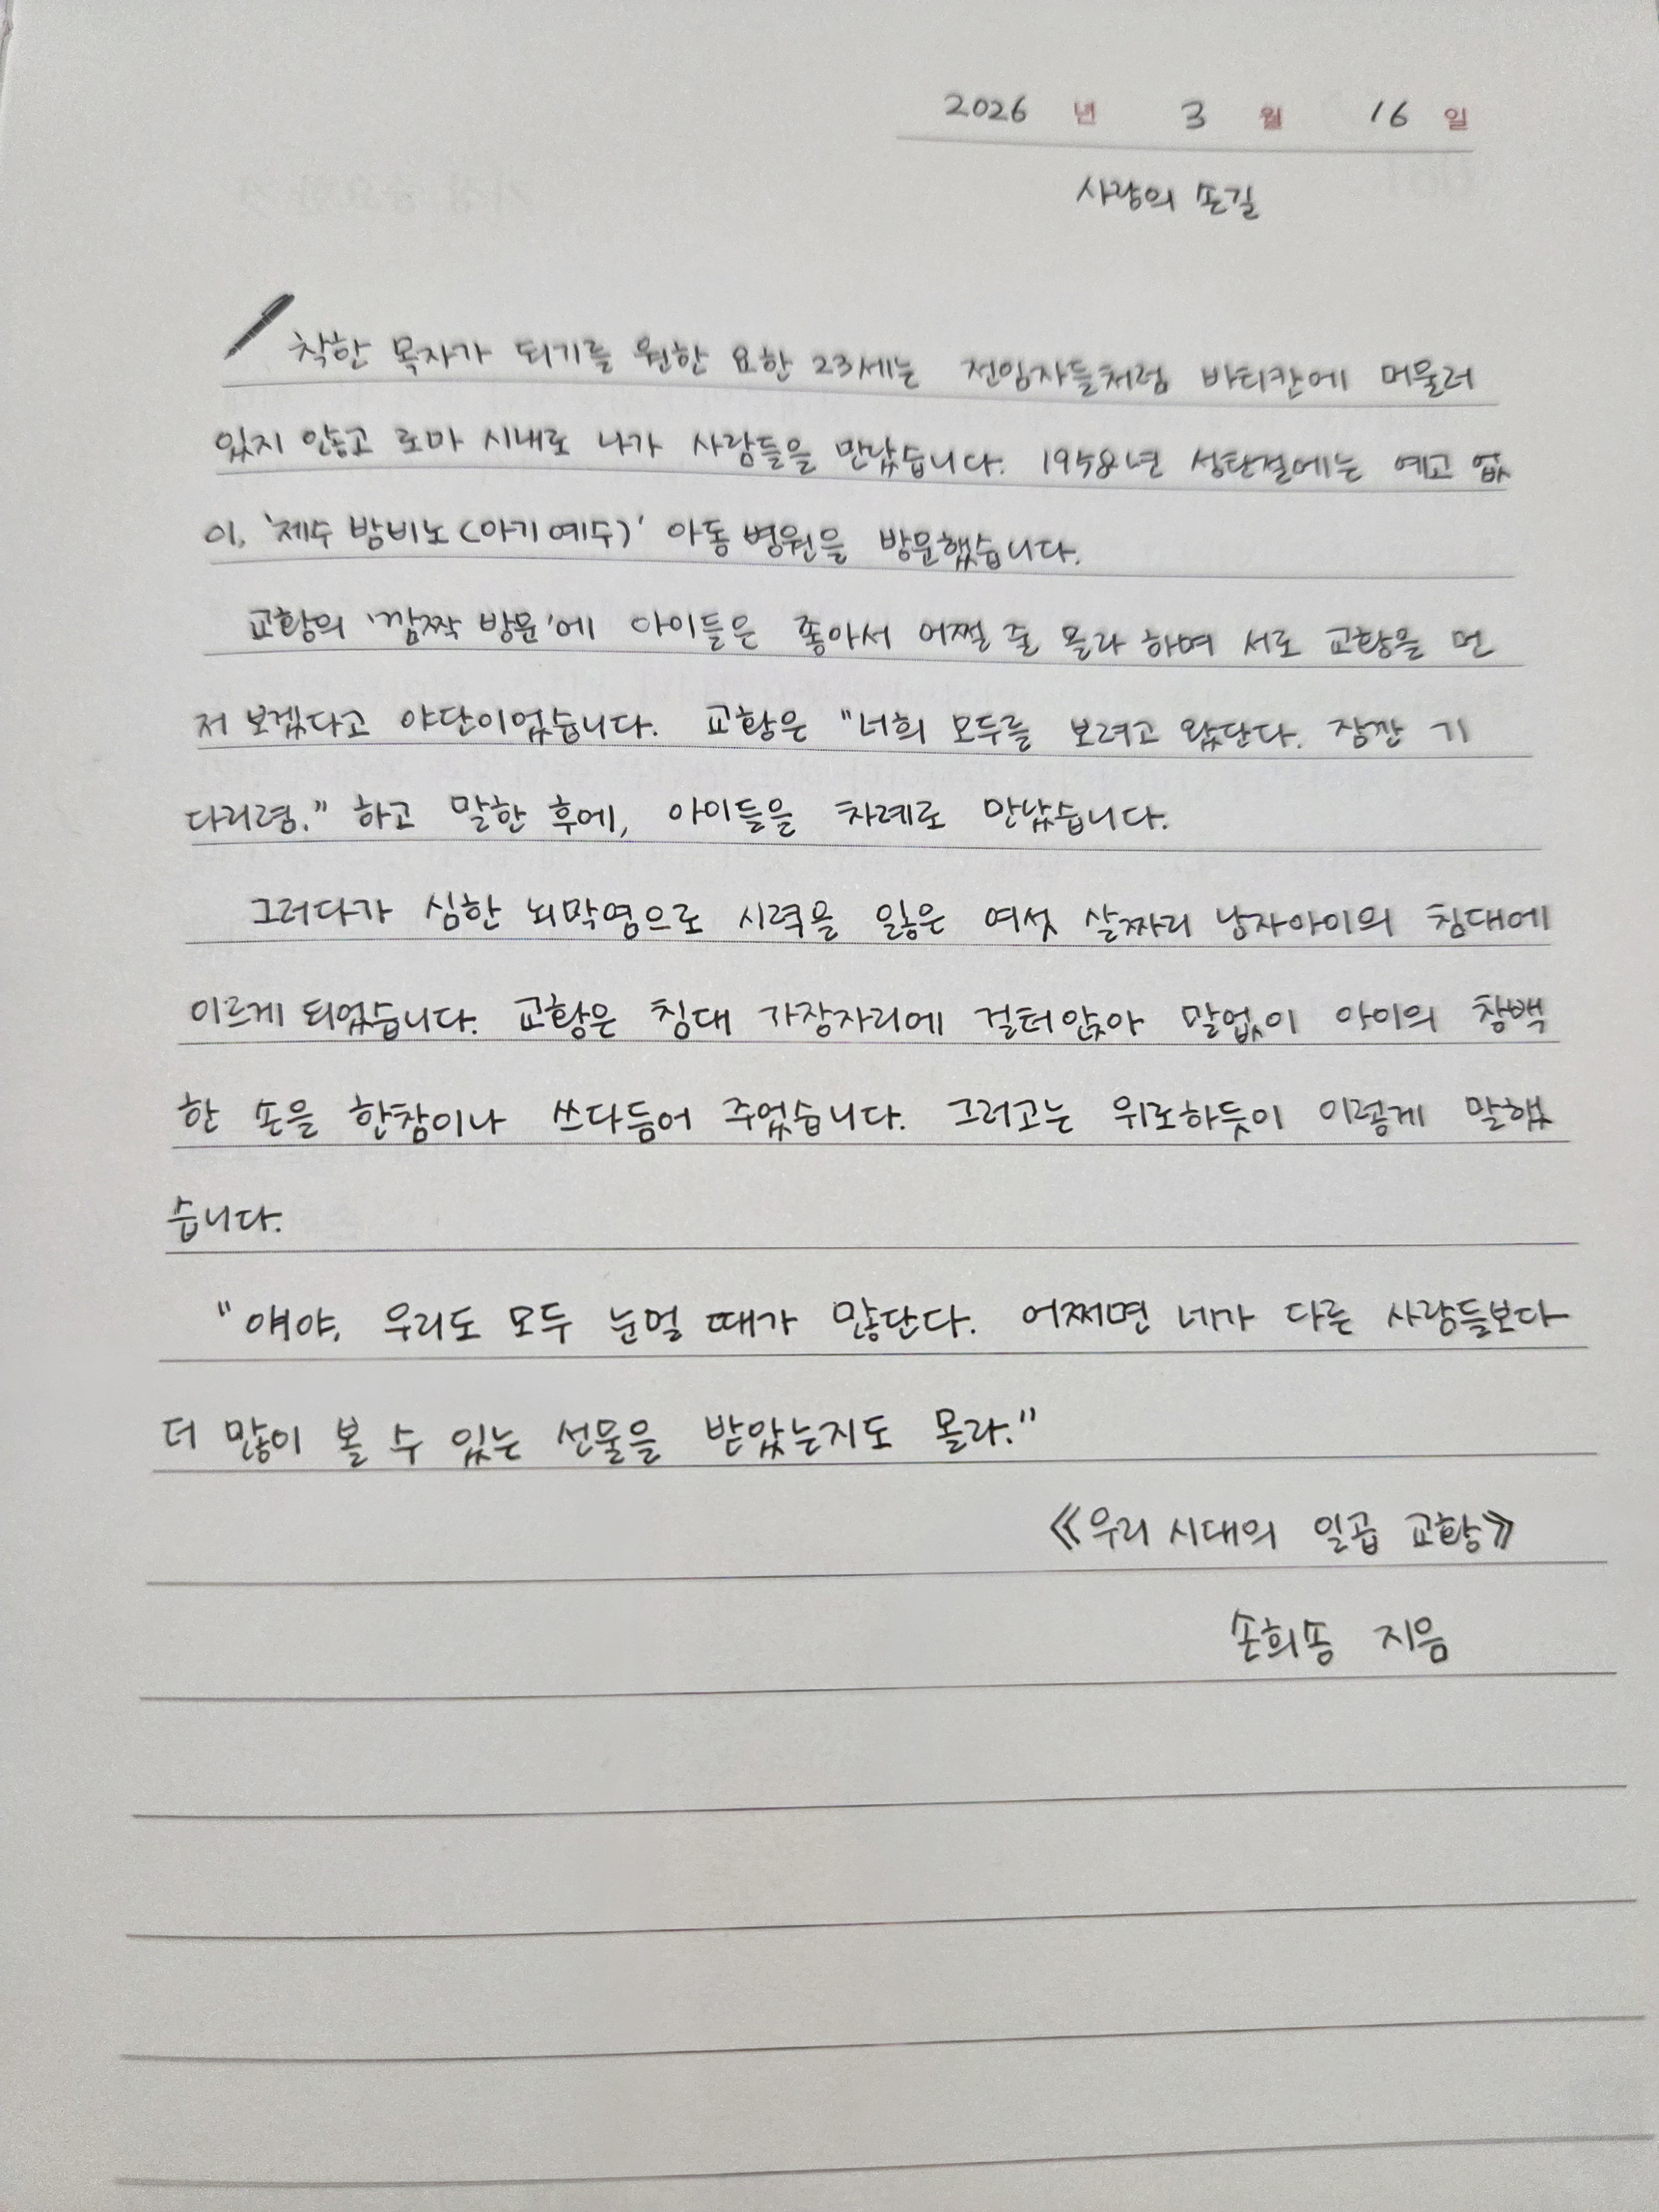 2026 년 3 월 16 일
사랑의 손길
착한 목자가 되기를 원한 요한 23세는 전임자들처럼 바티칸에 머물러
있지 않고 로마 시내로 나가 사람들을 만났습니다. 1958년 성탄절에는 예고 없
이, '제수 밤비노(아기 예수)' 아동 병원을 방문했습니다.
교황의 '깜짝 방문'에 아이들은 좋아서 어쩔 줄 몰라 하며 서로 교황을 먼
저 보겠다고 야단이었습니다. 교황은 "너희 모두를 보려고 왔단다. 잠깐 기
다리렴." 하고 말한 후에, 아이들을 차례로 만났습니다.
그러다가 심한 뇌막염으로 시력을 잃은 여섯 살짜리 남자아이의 침대에
이르게 되었습니다. 교황은 침대 가장자리에 걸터앉아 말없이 아이의 창백
한 손을 한참이나 쓰다듬어 주었습니다. 그러고는 위로하듯이 이렇게 말했
습니다.
"얘야, 우리도 모두 눈멀 때가 많단다. 어쩌면 네가 다른 사람들보다
더 많이 볼 수 있는 선물을 받았는지도 몰라."
《우리 시대의 일곱 교황》
손희송 지음